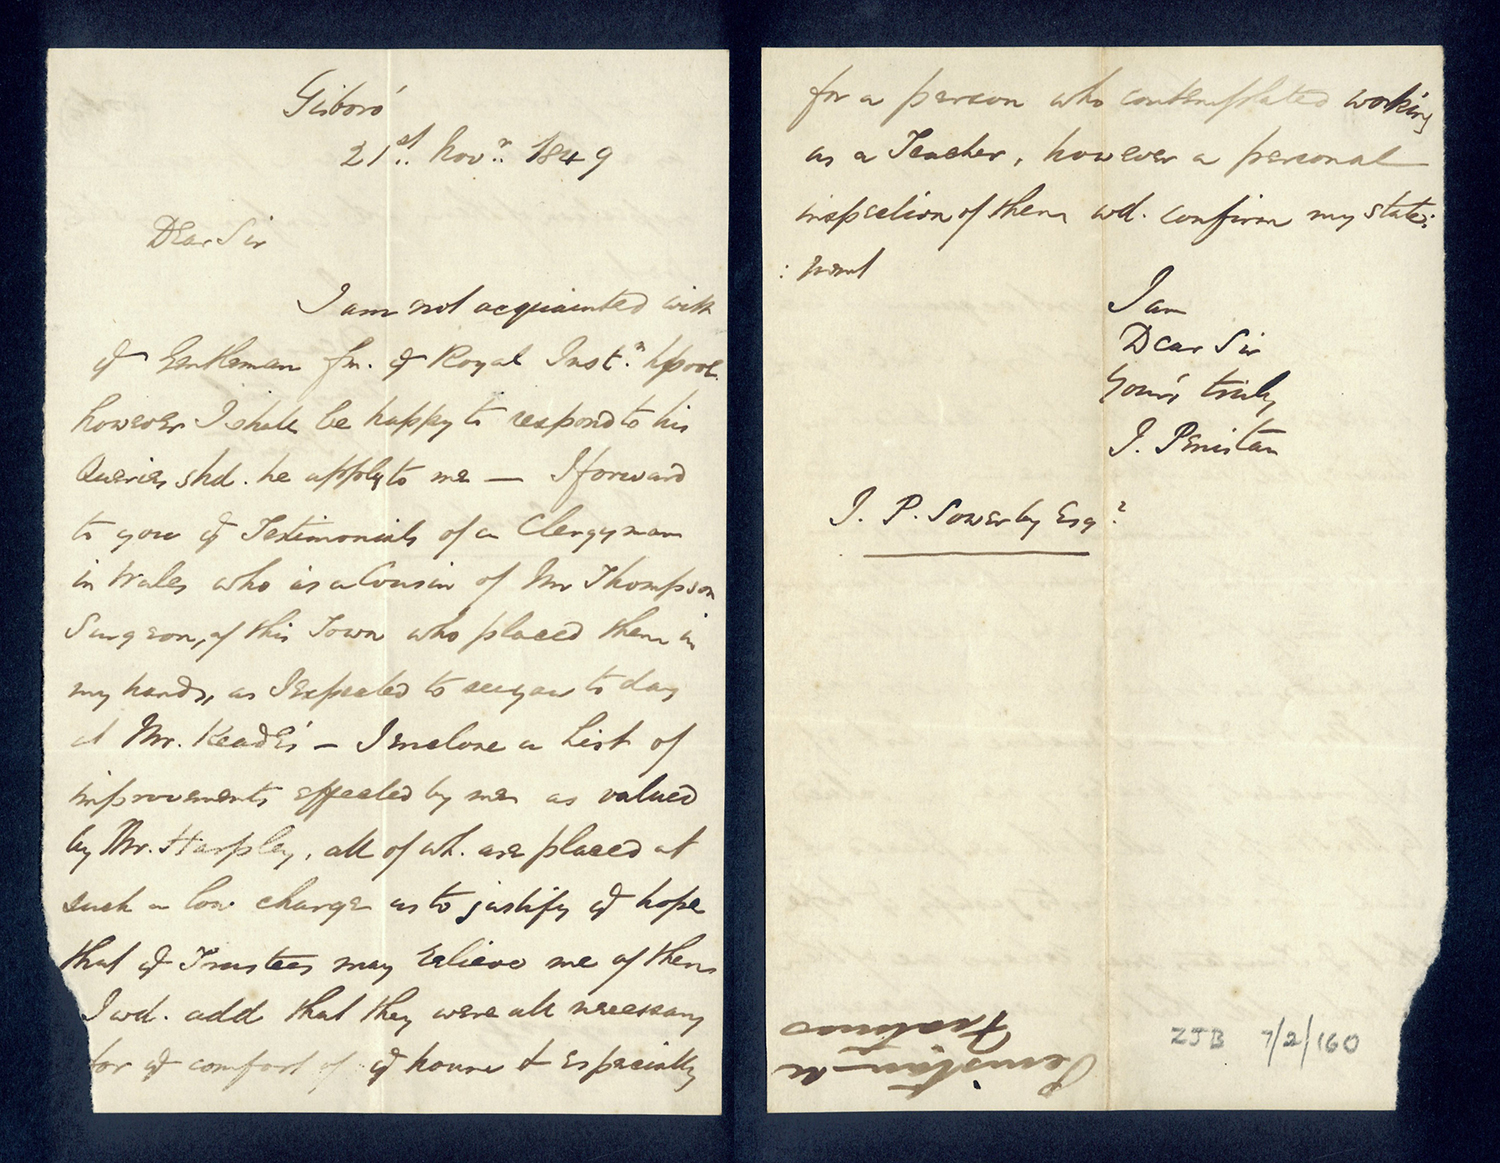 Gisboro'
21st. Novr. 1849
Dear Sir
I am not acquainted with
ye Gentleman fm. ye Royal Instn. Lpool.
however I shall be happy to respond to his
Queries shd. he apply to me — I forward
to you ye Testimonials of a Clergyman
in Wales who is a Cousin of Mr Thompson
Surgeon, of this Town who placed them in
my hands, as I expected to see you to day
at Mr. Keade's — I enclose a List of
improvements effected by me as valued
by Mr. Harpley, all of wh. are placed at
such a low charge as to justify ye hope
that ye Trustees may relieve me of them
I wd. add that they were all necessary
for ye comfort of ye house & especially
for a person who contemplated working
as a Teacher, however a personal
inspection of them wd. confirm my state:
:ment
I am
Dear Sir
Yours truly
J. Penistan
J. P. Sowerby Esqr
Penistan
Fixtures
ZJB 7/2/160